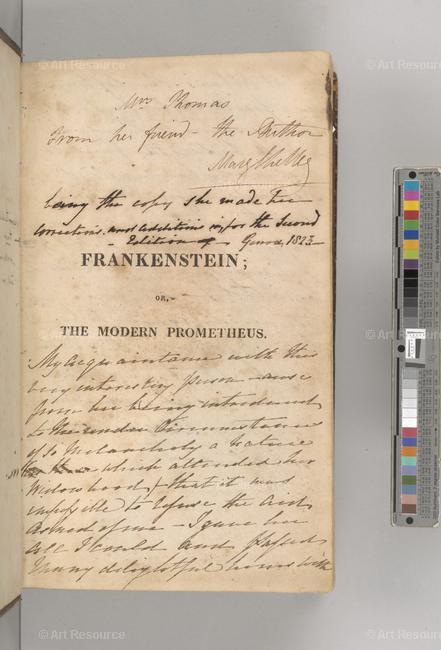 Mrs Thomas
From her friend - the Author
Mary Shelley
being the copy she made her
corrections and additions in, for the Second
Edition of - Genoa, 1823
FRANKENSTEIN;
OR,
THE MODERN PROMETHEUS.
My acquaintance with this
very interesting person - arose
from her being introduced
to me under Circumstances
of so Melancholy a nature
which attended her
Widowhood, that it was
impossible to refuse the aid
asked of me - I gave her
all I could and passed
many delightful hours with
© Art Resource
© Art Resource
© Art Resource
© Art Resource
© Art Resource
© Art Resource